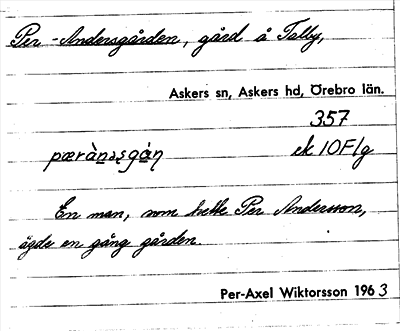 Per-Andersgården, gård å Tälby,
Askers sn, Askers hd, Örebro län.
357
pæràn̲əʂgȧ̀ɳ ek 10F1g
En man, som hette Per Andersson,
ägde en gång gården.
Per-Axel Wiktorsson 1963